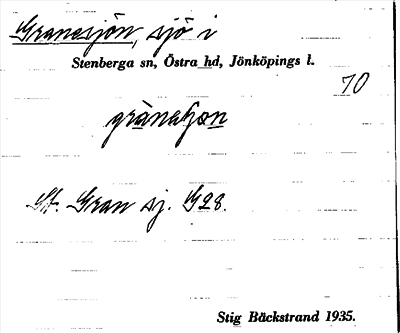 Granesjön, sjö i
Stenberga sn, Östra hd, Jönköpings l.
70
St. Gran sj. G28.
Stig Bäckstrand 1935.